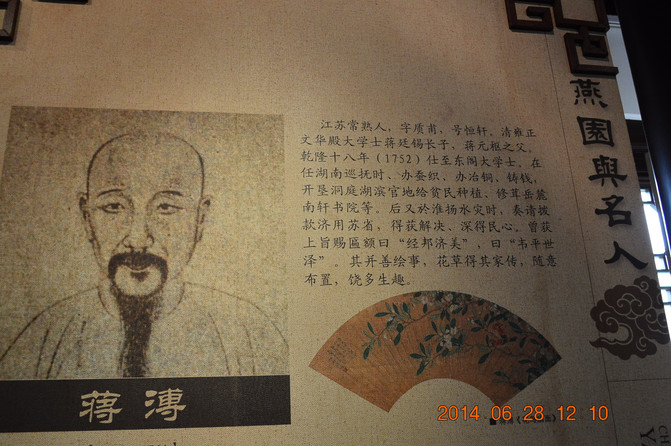 燕園與名人
江苏常熟人，字质甫，号恒轩，清雍正
文华殿大学士蒋廷锡长子，蒋元枢之父。
乾隆十八年（1752）仕至东阁大学士。在
任湖南巡抚时、办蚕织、办冶铜、铸钱，
开垦洞庭湖滨官地给贫民种植、修茸岳麓
南轩书院等。后又於淮扬水灾时，奏请拨
款济用苏省，得获解决、深得民心。曾获
上旨赐匾额曰“经邦济美”，曰“韦平世
泽”。其并善绘事，花草得其家传，随意
布置，饶多生趣。
蒋溥
2014 06 28 12 10